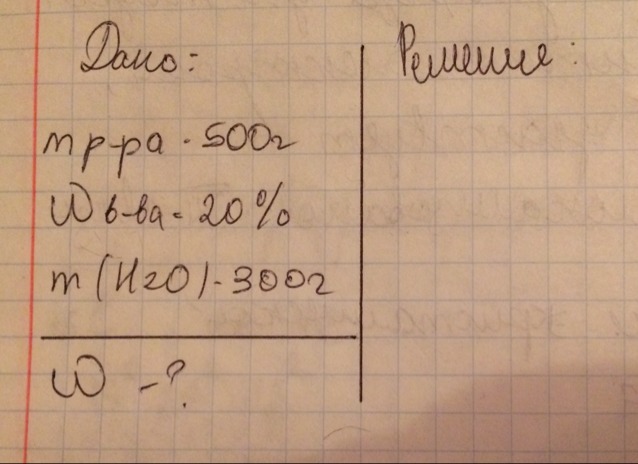 Дано:
Решение:
m р-ра - 500г
W в-ва = 20%
m (H2O) - 300г
W - ?